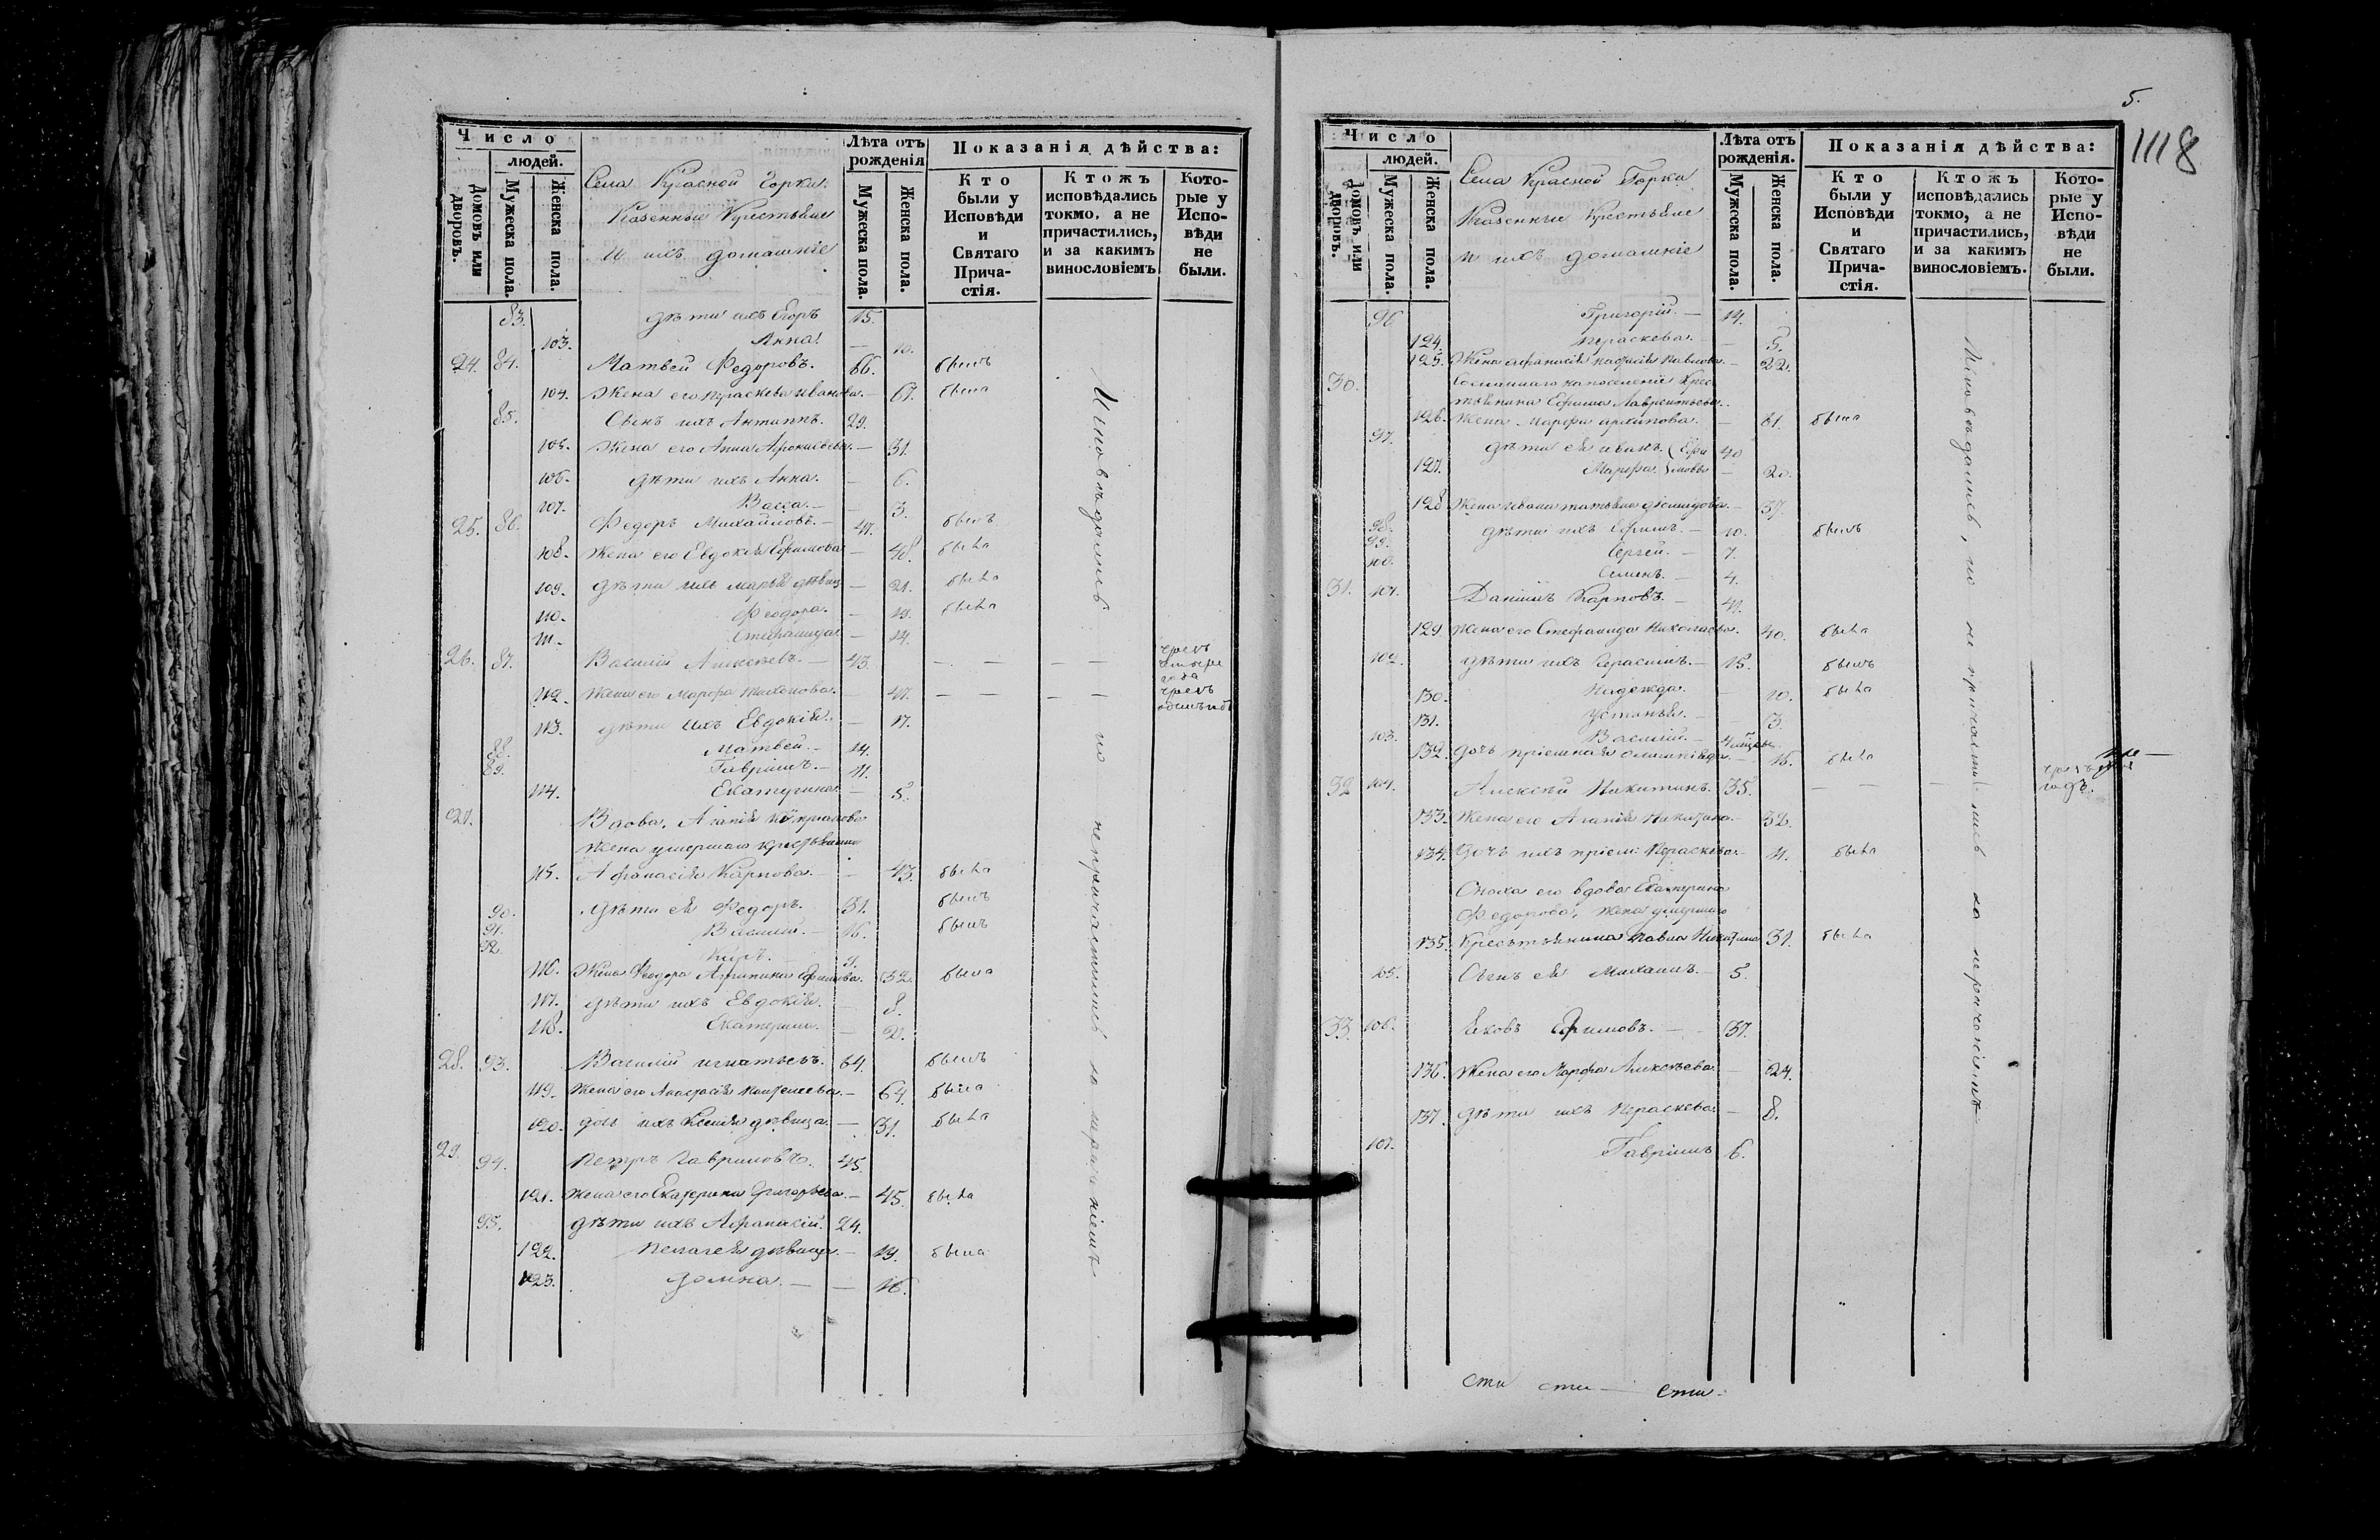 Число
людей.
Домовъ или дворовъ.
Мужеска пола.
Женска пола.
Села Красной Горки
Казенные Крестьяне
и ихъ домашніе
Лѣта отъ рожденія
Мужеска пола.
Женска пола.
Показанія дѣйства:
Кто были у Исповѣди и Святаго Причастія.
Ктожъ исповѣдались токмо, а не причастились, и за какимъ винословіемъ
Которые у Исповѣди не были.
83. дѣти ихъ Егоръ 15.
103. Анна. — 10.
24. 84. Матвей Федоровъ. 66. былъ
104. Жена его Параскева Иванова. — 67. была
85. Сынъ ихъ Антипъ. 29.
105. Жена его Анна — 31.
106. дѣти ихъ Анна. — 6.
107. Васса. — 3.
25. 86. Федоръ Михайловъ. — 47. былъ
108. Жена его Евдокія Ефимова — 48. была
109. дѣти ихъ Марья дѣвица — 21. была
110. Феодора. — 19. была
111. Стефанида. — 14.
26. 87. Василій Алексѣевъ. — 43. — — — — чрезъ года
112. Жена его Марфа Тихонова. — 47. — — — — чрезъ
113. дѣти ихъ Евдокія. — 17.
88. Матвей. — 14.
89. Гавріилъ. — 11.
114. Екатерина. — 5.
27. Вдова, Агапія
Жена умершаго крестьянина
115. Афанасія Карпова. — 43. была
90. дѣти ея Федоръ. 31. былъ
91. Василій. — 16. былъ
92. Киръ. —
116. Жена Феодора Агрипина Ефимова. 32. была
117. дѣти ихъ Евдокія. — 8.
118. Екатерина. — 2.
28. 93. Василій Игнатьевъ. 64. былъ
119. Жена его Анастасія — 64. была
120. дочь ихъ Ксенія дѣвица. — 31. была
29. 94. Петръ Гавриловъ. 45.
121. Жена его Екатерина Григорьева. — 45. была
95. дѣти ихъ Афанасій. 24.
122. Пелагея дѣвица. — 19. была
123. Домна. — — 16.
Исповѣдались но непричастились за нераченіемъ
5.
1118
Число
людей.
Домовъ или дворовъ.
Мужеска пола.
Женска пола.
Села Красной Горки
Казенные Крестьяне
и ихъ домашніе
Лѣта отъ рожденія.
Мужеска пола.
Женска пола.
Показанія дѣйства:
Кто были у Исповѣди и Святаго Причастія.
Ктожъ исповѣдались токмо, а не причастились, и за какимъ винословіемъ.
Которые у Исповѣди не были.
96 Григорій. — 14.
124. Параскева. — — 5.
125. Жена Афанасія Павлова. — 22.
30. Сосланнаго на поселеніе Крестьянина Ефима Лаврентьева.
126. Жена Марфа Архипова. — 61. была
97. дѣти ея Иванъ. (Ефи 40
127. Марфа. ) мовы — 20.
128 Жена Ивана Татьяна — 37.
98. дѣти ихъ Ефимъ. — 10. былъ
99. Сергей. — 7.
100. Семенъ. — 4.
31. 101. Даніилъ Карповъ. — 41.
129. Жена его Стефанида Николаева. 40. была
102. дѣти ихъ Герасимъ. — 15. былъ
130. Надежда. — 10. была
131. Устинья. — 3.
103. Василій. —
132. дочь пріемная Олимпіада. — 16. была
32 104. Алексѣй Никитинъ. 35. — — — — чрезъ годъ.
133. Жена его Агапія — 32.
134. Дочь ихъ пріем: Параскева. — 11. была
Сноха его вдова Екатерина
Федорова, Жена умершаго
135. Крестьянина Павла Никитина 31. была
105. Сынъ ея Михаилъ. — 5.
33. 106. Яковъ Ефимовъ. — 37.
136. Жена его Марфа Алексѣева. — 24.
137. дѣти ихъ Параскева. — 8.
107. Гавріилъ 6.
Исповѣдались, но не причастились за нерачениемъ
сти сти — сти.